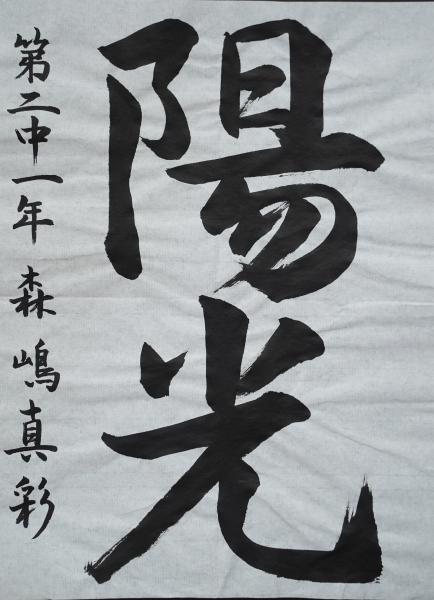 陽光
第二中一年 森嶋真彩